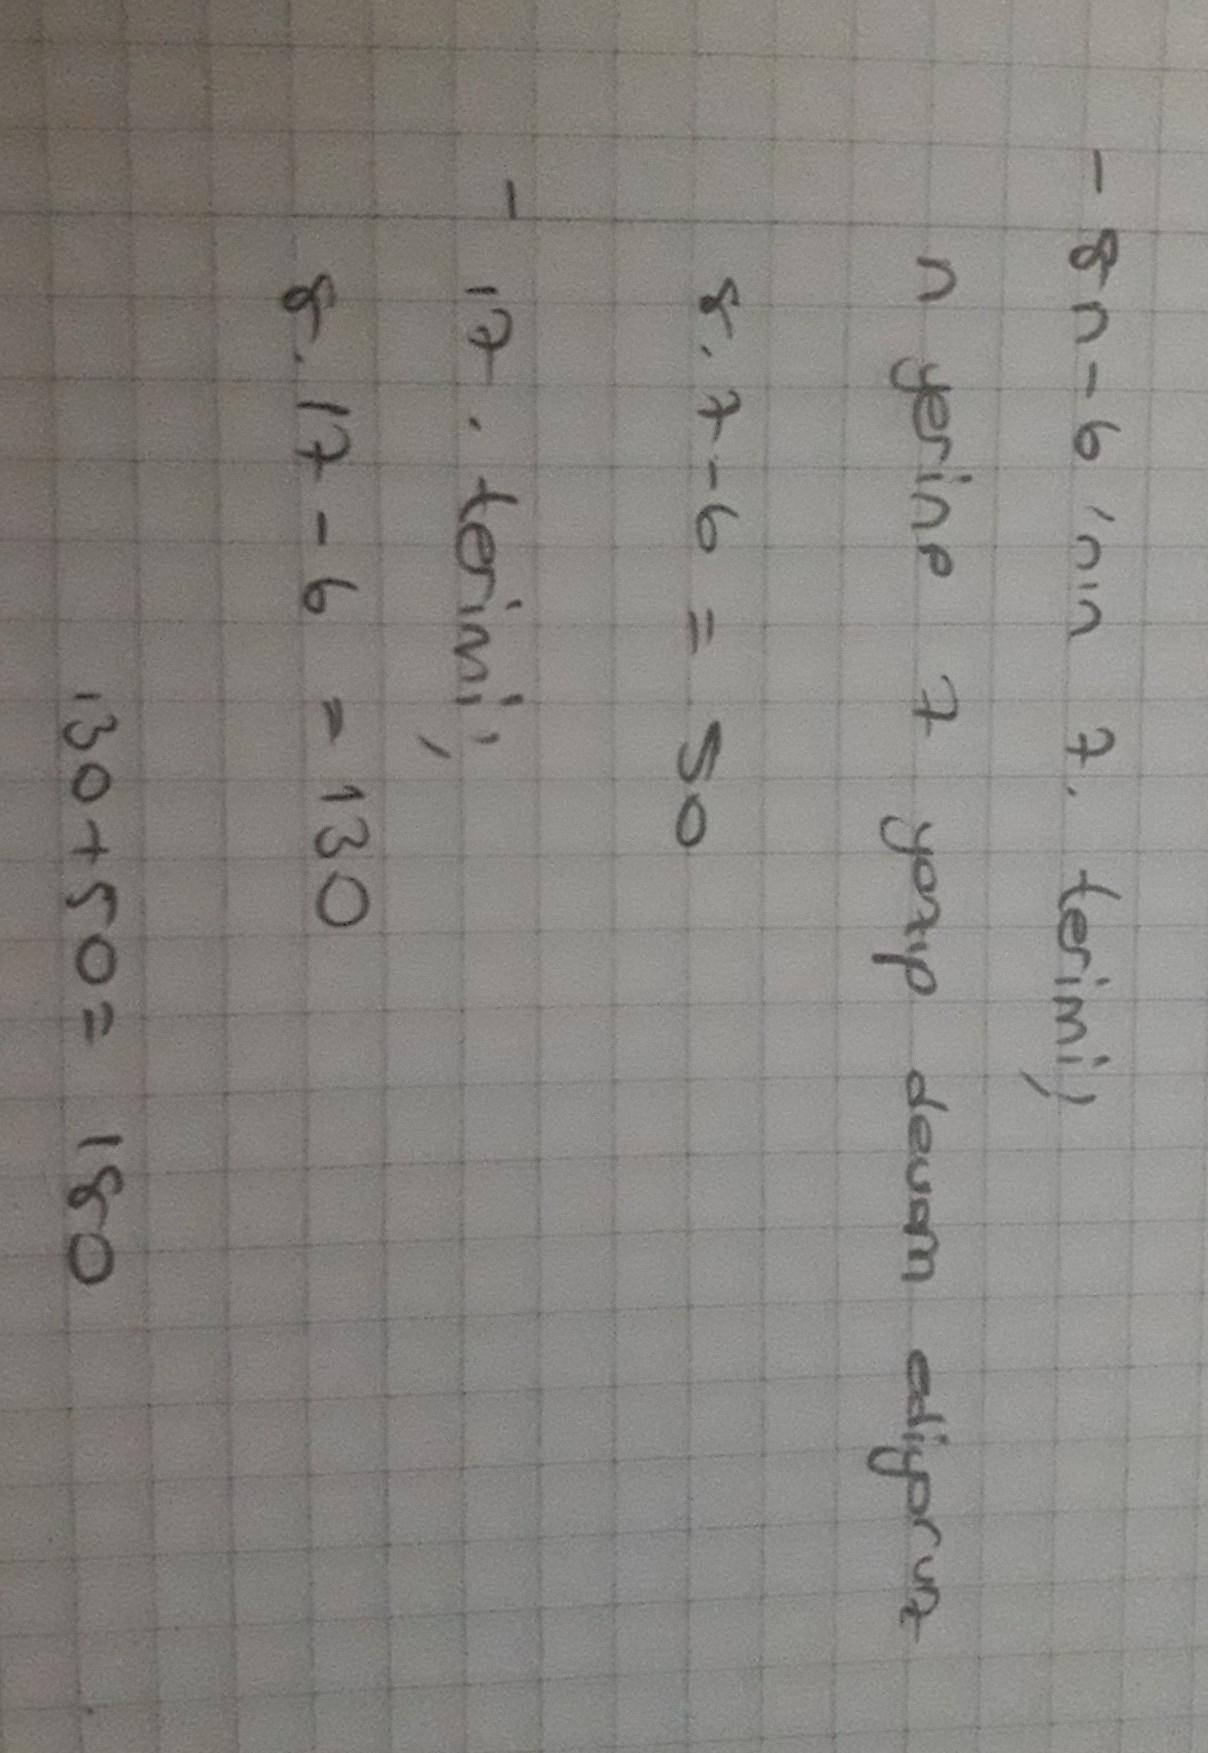 - 8n-6'nın 7. terimi;
n yerine 7 yazıp devam ediyoruz
8.7-6 = 50
- 17. terimi;
8.17-6 = 130
130+50= 180